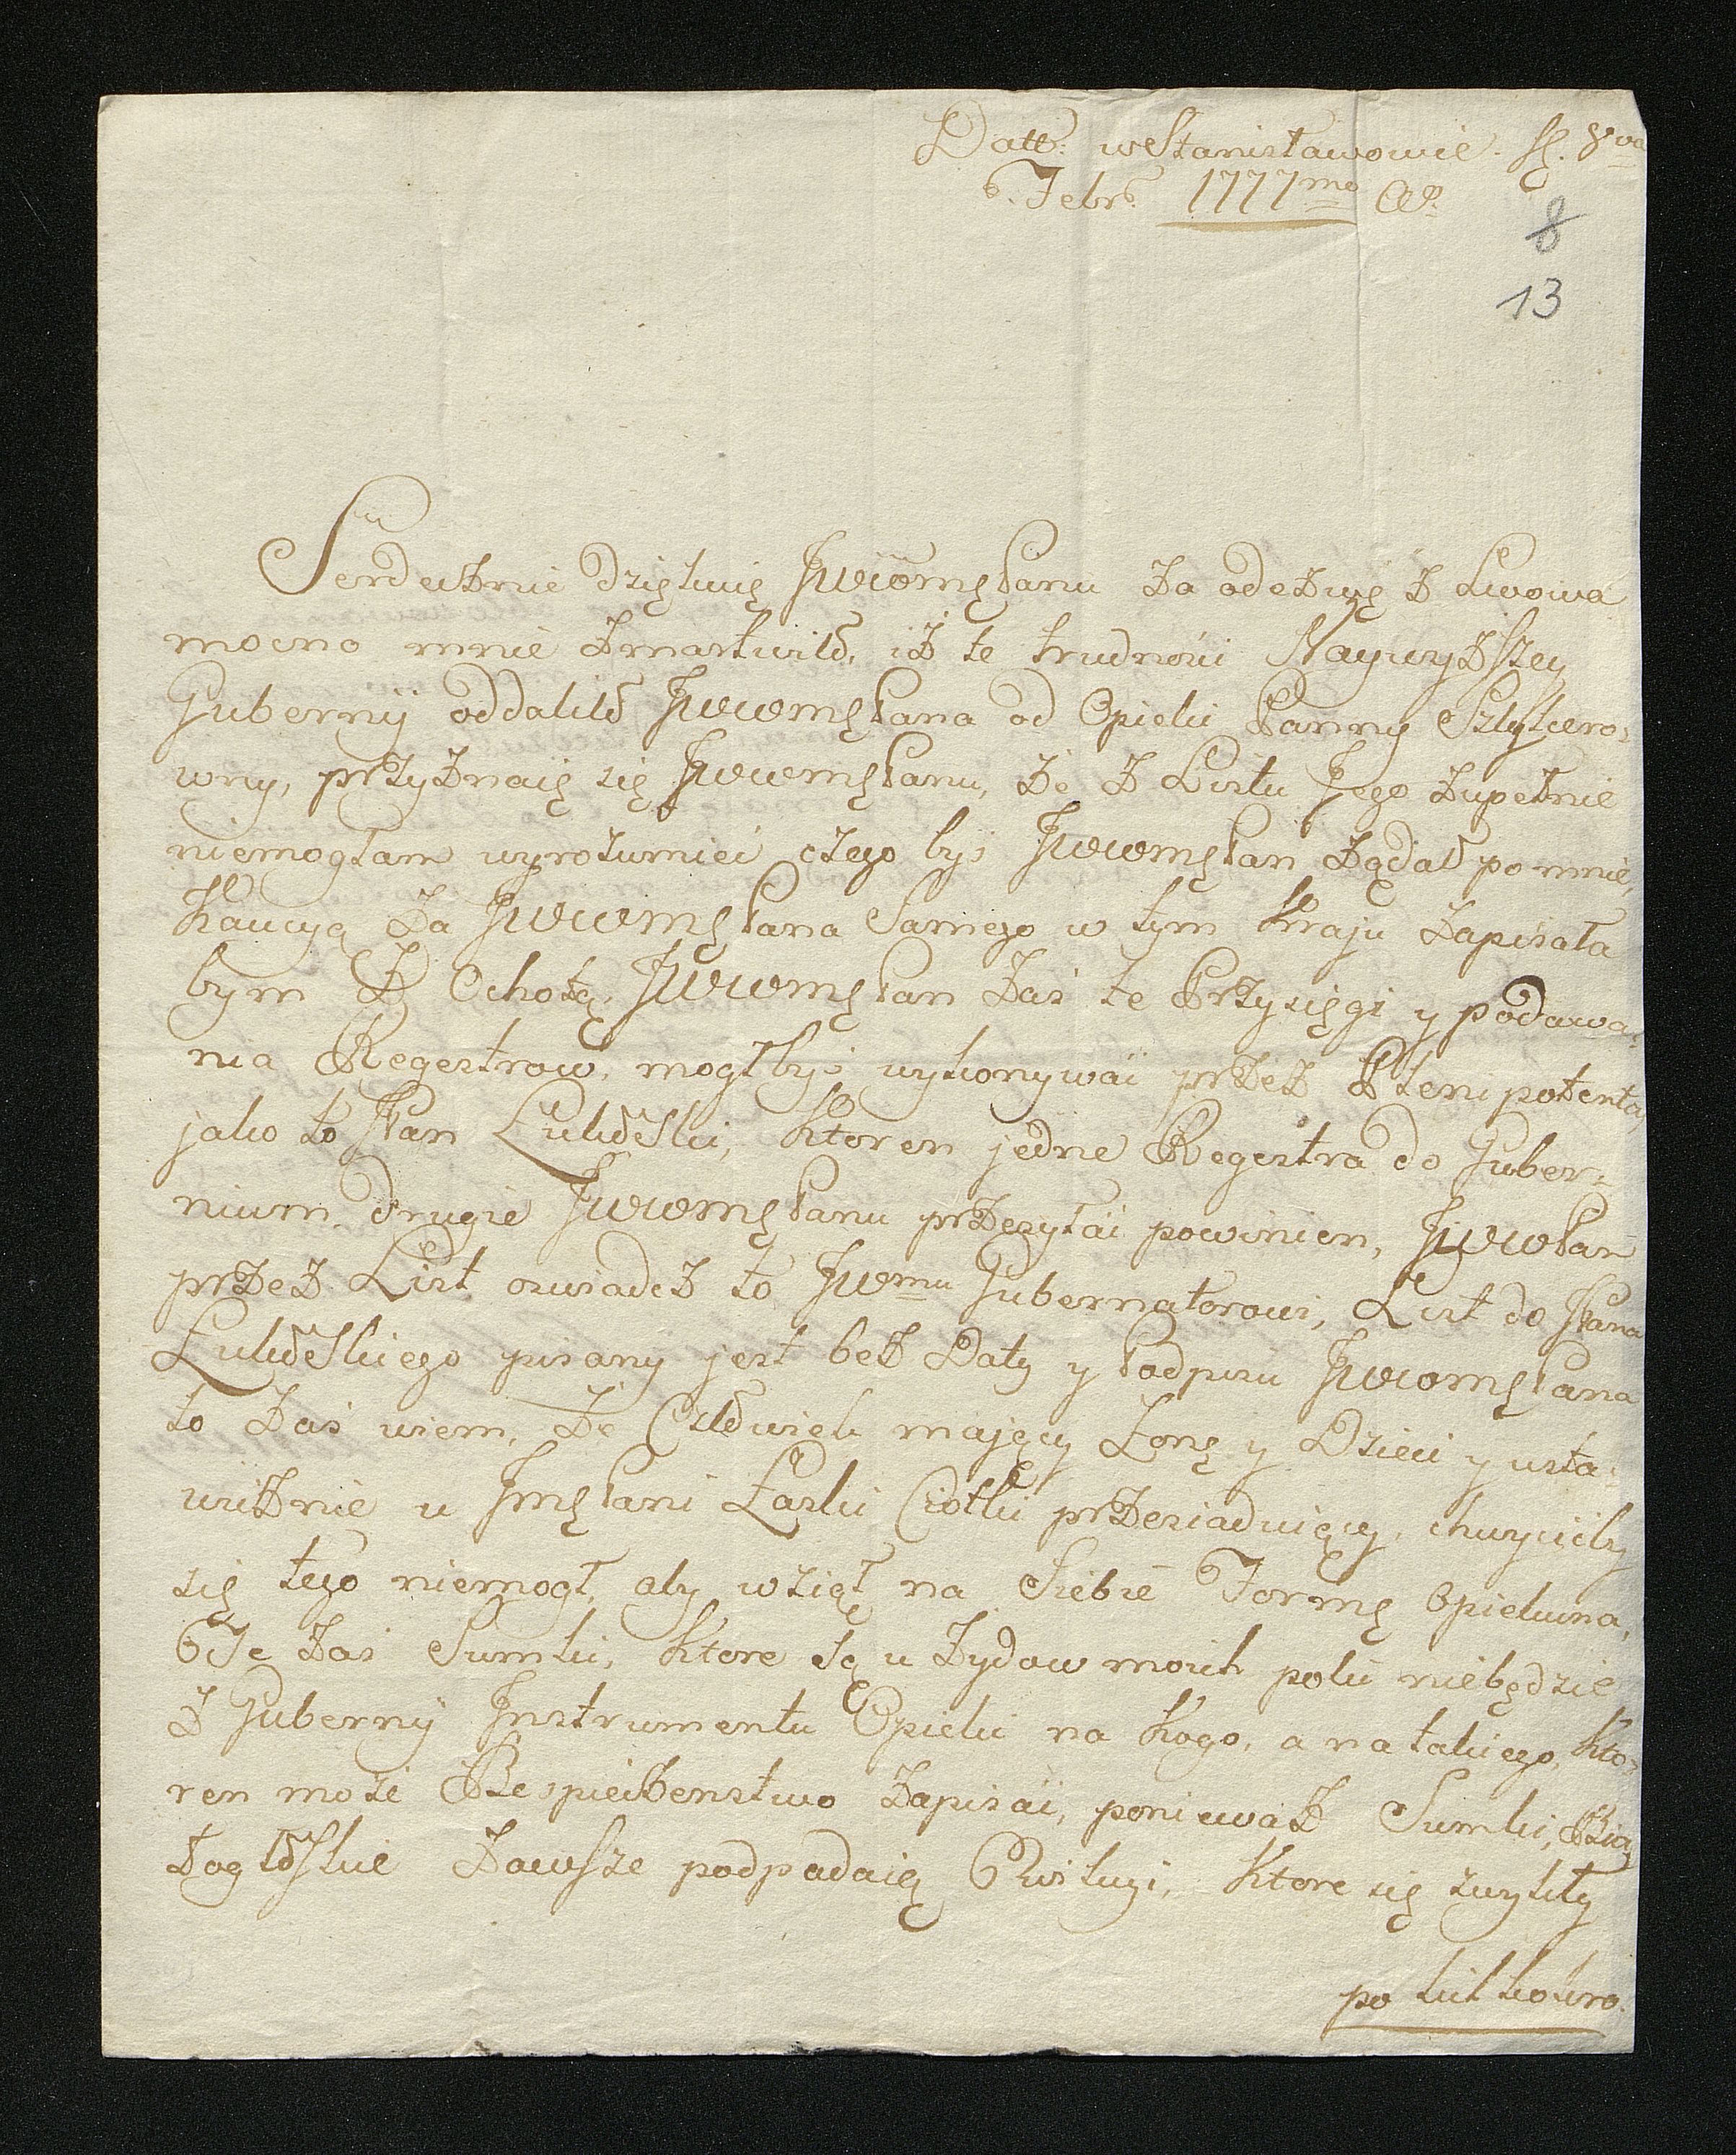 Datt: w Stanisławowie. 8va
Febr: 1777mo Ao
8
13
Serdecznie dziękuię JWWomęPanu Za odezwę Z Lwowa
mocno mnie Zmartwiło, iż te trudności Naywyższey
Gubernij oddaliło JWWomęPana od Opieki Panny
wny, przyznaię się JWWomęPanu, Że Z Listu Jego Zupełnie
niemogłam wyrozumieć czego byś JWWomęPan Żądał po mnie,
Kaucyą Za JWWomęPana Samego w tym Kraju Zapisała
bym Z Ochotą, JWWomęPan Zaś te Przysięgi y podawa-
nia Regestrow, mogłbyś wykonywać przez Plenipotenta,
jako to Pan Ktoren jedne Regestra do Guber-
nium, drugie JWWomęPanu przesyłać powinien, JWWPan
przez List oswiadcz to JWmu Gubernatorowi, List do Pana
pisany jest bez Daty y Podpisu JWWomęPana
to Zaś wiem, Że Człowiek mający Żonę y Dzieci y usta-
wicznie u JmęPani Ciotki przesiaduiący, chwyciłby
się tego niemogł, aby wzioł na Siebie Formę Opiekuna,
Te Zaś Sumki, Ktore są u Żydow moich poki niebędzie
Z Guberny Instrumentu Opieki na Kogo, a na takiego, Kto-
ren może Bespieczenstwo Zapisać, poniewaz Sumki,
Zawsze podpadaią Ktore się zwykły
po kilkokro-